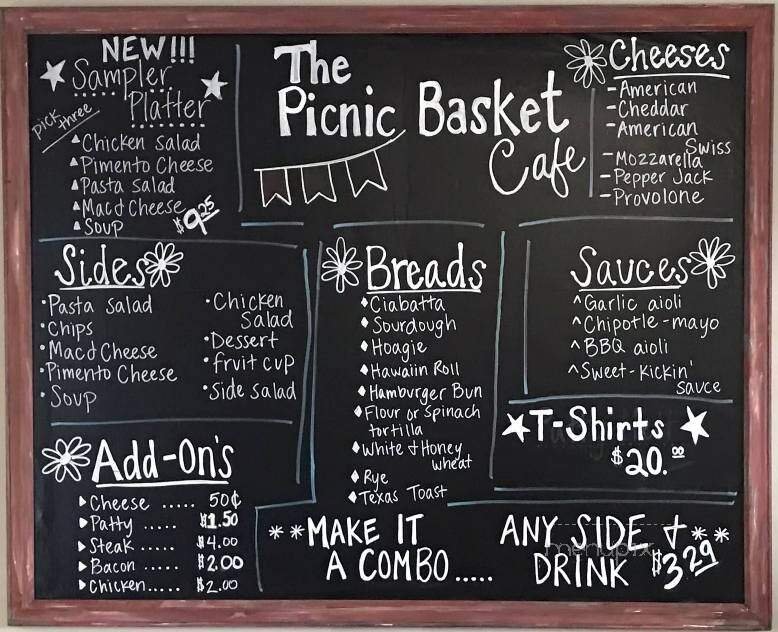 NEW!!!
Sampler
Platter
pick three
Chicken Salad
Pimento Cheese
Pasta Salad
Mac & Cheese
Soup
$9.25
The
Picnic Basket
Cafe
Cheeses
-American
-Cheddar
-American
Swiss
-Mozzarella
-Pepper Jack
-Provolone
Sides
•Pasta Salad
•Chips
•Mac & Cheese
•Pimento Cheese
•Soup
•Chicken
Salad
•Dessert
•fruit cup
•Side Salad
Breads
♦Ciabatta
♦Sourdough
♦Hoagie
♦Hawaiin Roll
♦Hamburger Bun
♦Flour or Spinach
tortilla
♦White & Honey
wheat
♦Rye
♦Texas Toast
Sauces
^Garlic aioli
^Chipotle-mayo
^BBQ aioli
^Sweet-Kickin'
sauce
T-Shirts
$20.00
Add-On's
Cheese ..... 50¢
Patty ..... $1.50
Steak ..... $4.00
Bacon ..... $2.00
Chicken..... $2.00
**MAKE IT
A COMBO.....
ANY SIDE &**
DRINK $3.29
menupix